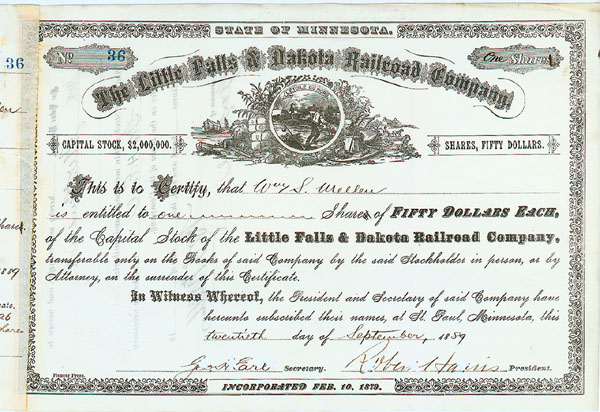 STATE OF MINNESOTA.
36
No 36
One Share
The Little Falls & Dakota Railroad Company.
CAPITAL STOCK, $2,000,000.
SHARES, FIFTY DOLLARS.
This is to Certify, that Wm S. Mellen
is entitled to one Shares of FIFTY DOLLARS EACH,
of the Capital Stock of the Little Falls & Dakota Railroad Company,
transferable only on the Books of said Company by the said Stockholder in person, or by
Attorney, on the surrender of this Certificate.
In Witness Whereof, the President and Secretary of said Company have
hereunto subscribed their names, at St. Paul, Minnesota, this
twentieth day of September, 1889
Geo H Earl Secretary. President.
Pioneer Press.
INCORPORATED FEB. 10, 1879.
1889